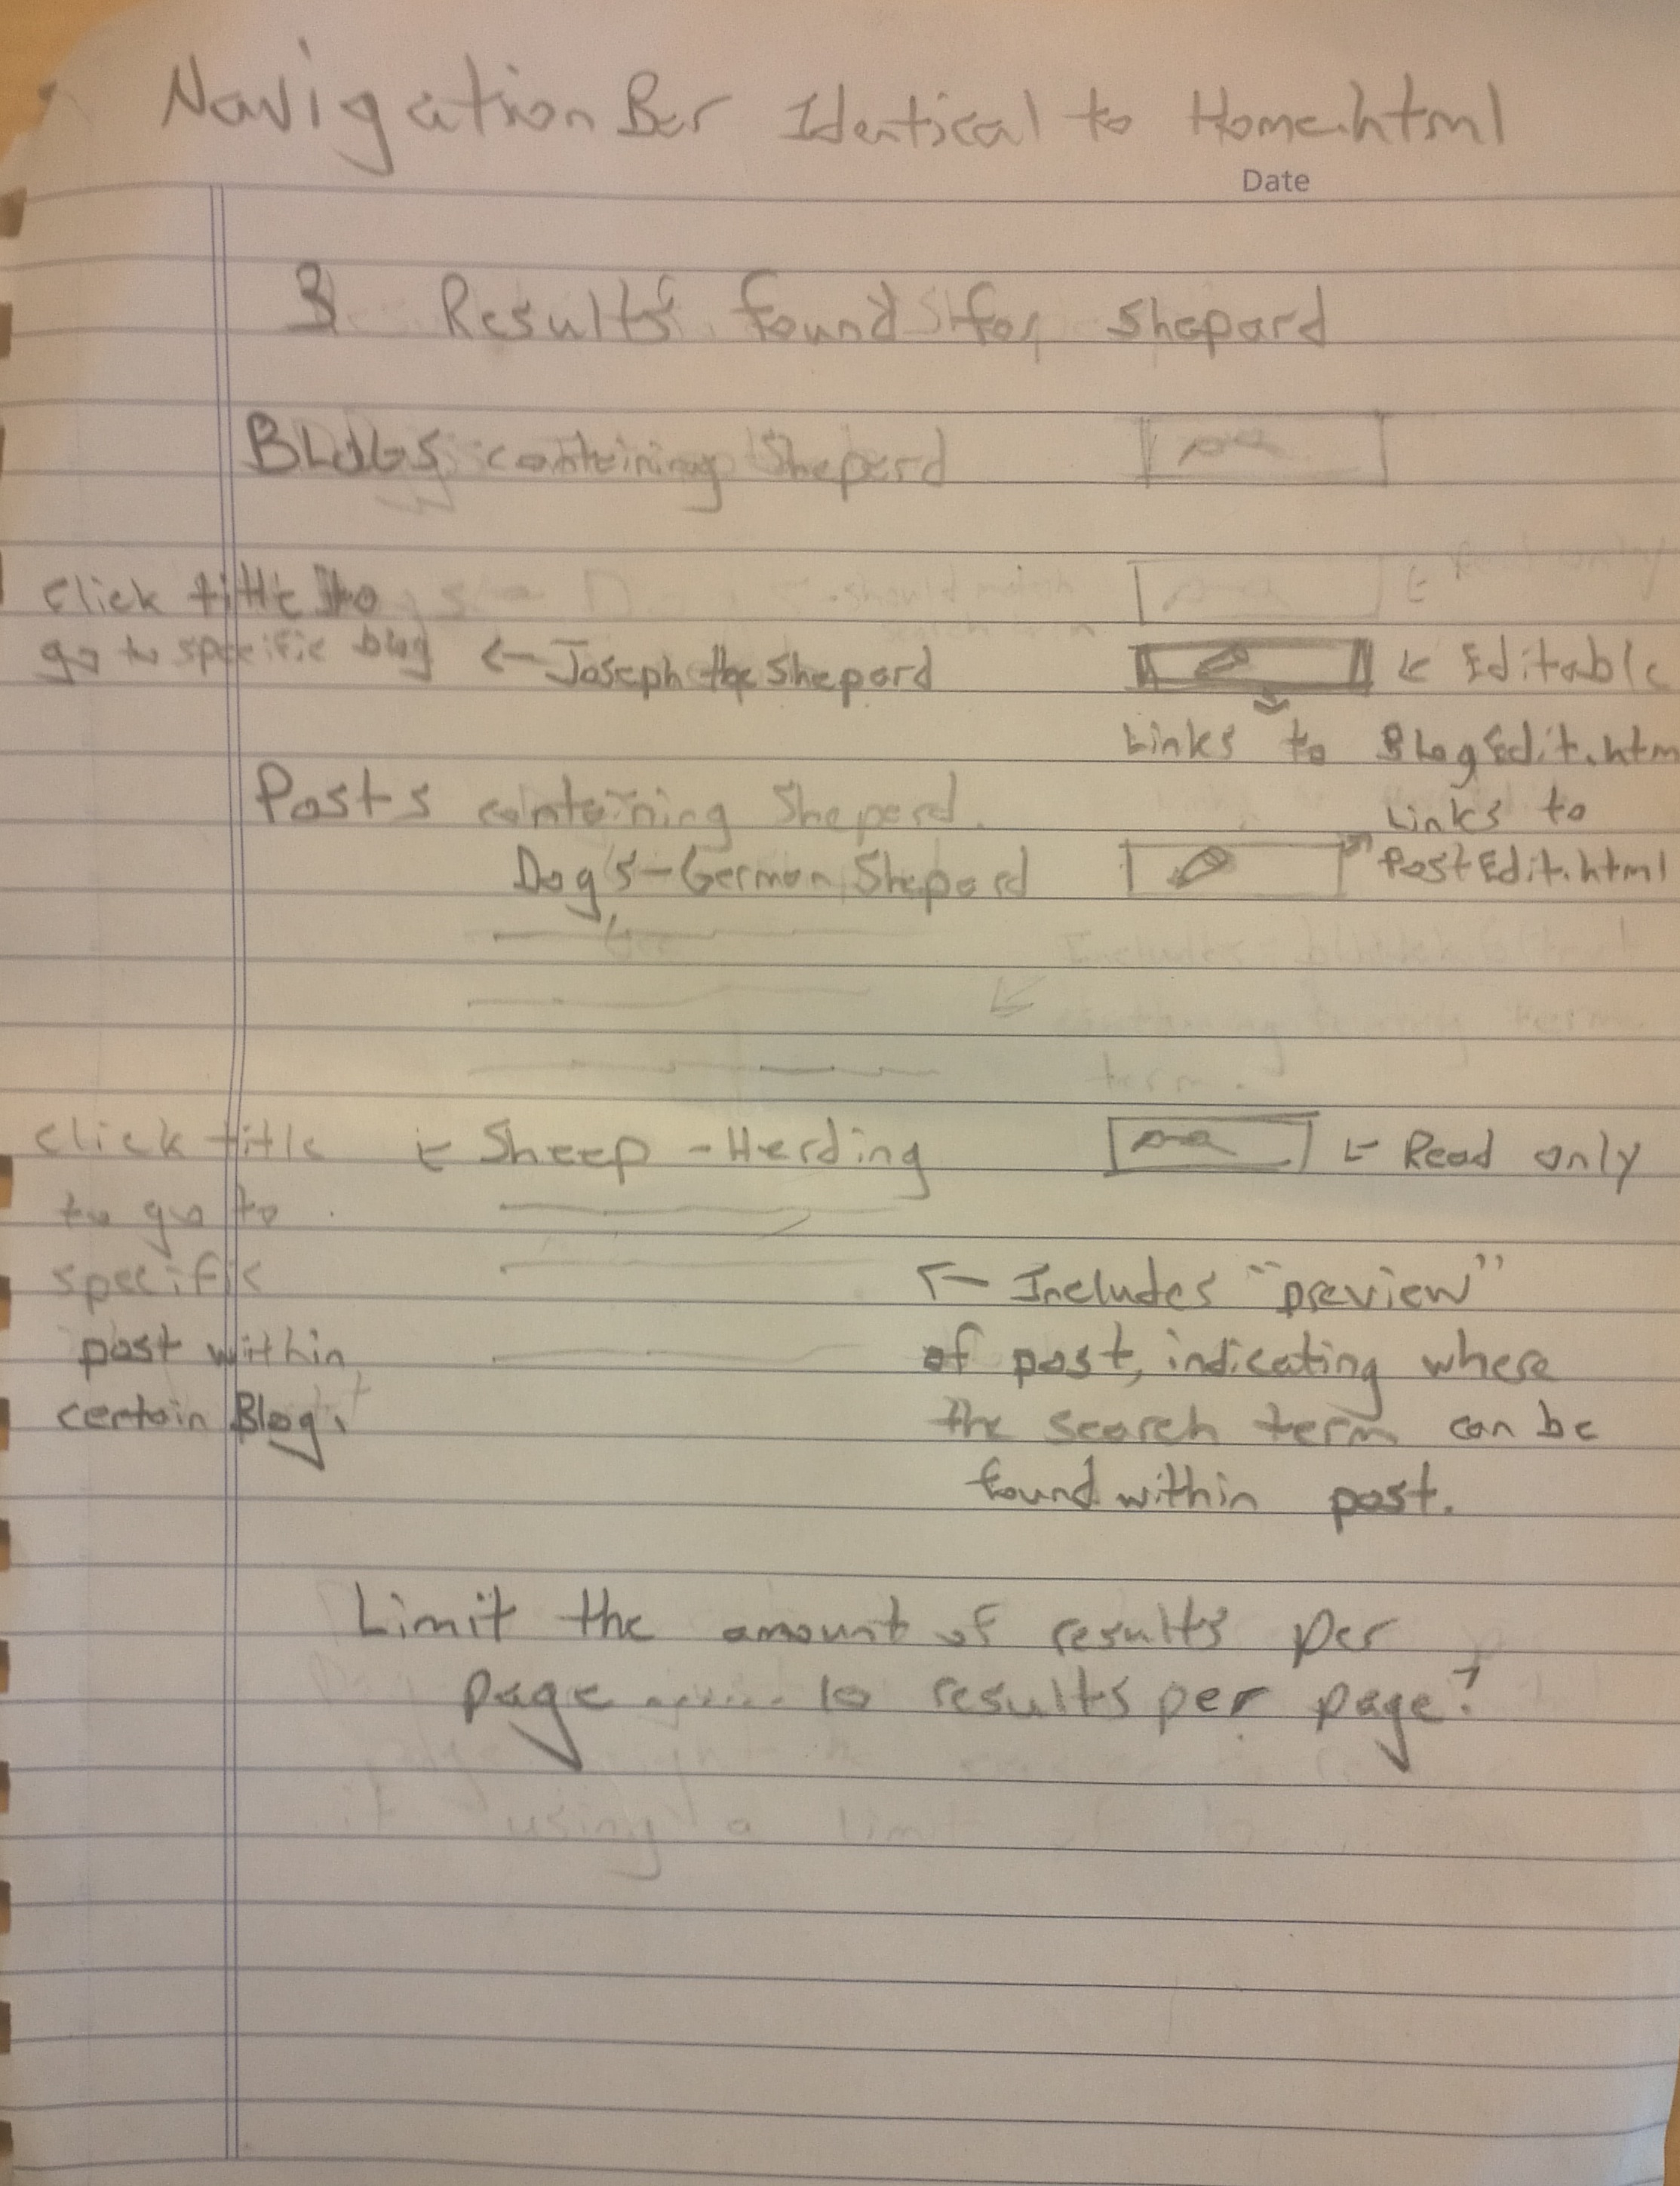 Navigation Bar Identical to Home.html
Date
3 Results found for Shepard
BLOGS containing Sheperd
Click title to
go to specific blog ← Joseph the Shepard
← Editable
Links to BlogEdit.htm
Posts containing Sheperd.
Links to
PostEdit.html
Dog's - German Shepard
Click title ← Sheep - Herding
← Read only
to go to
specific
post within
certain Blog.
← Includes "preview"
of post, indicating where
the search term can be
found within post.
Limit the amount of results per
page ....... 10 results per page?
it using a limit